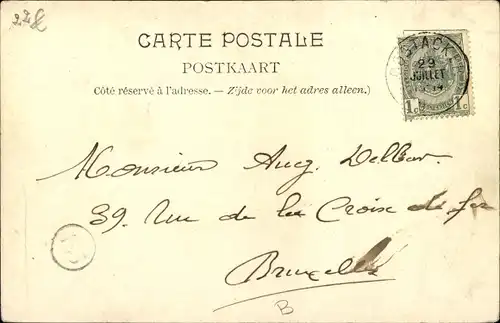 CARTE POSTALE
POSTKAART
Côté réservé à l'adresse. — Zijde voor het adres alleen.)
OOSTACKER
29
JUILLET
1c 1c
Monsieur Aug. Delbar.
39. Rue de la Croix de fer
Bruxelles
B